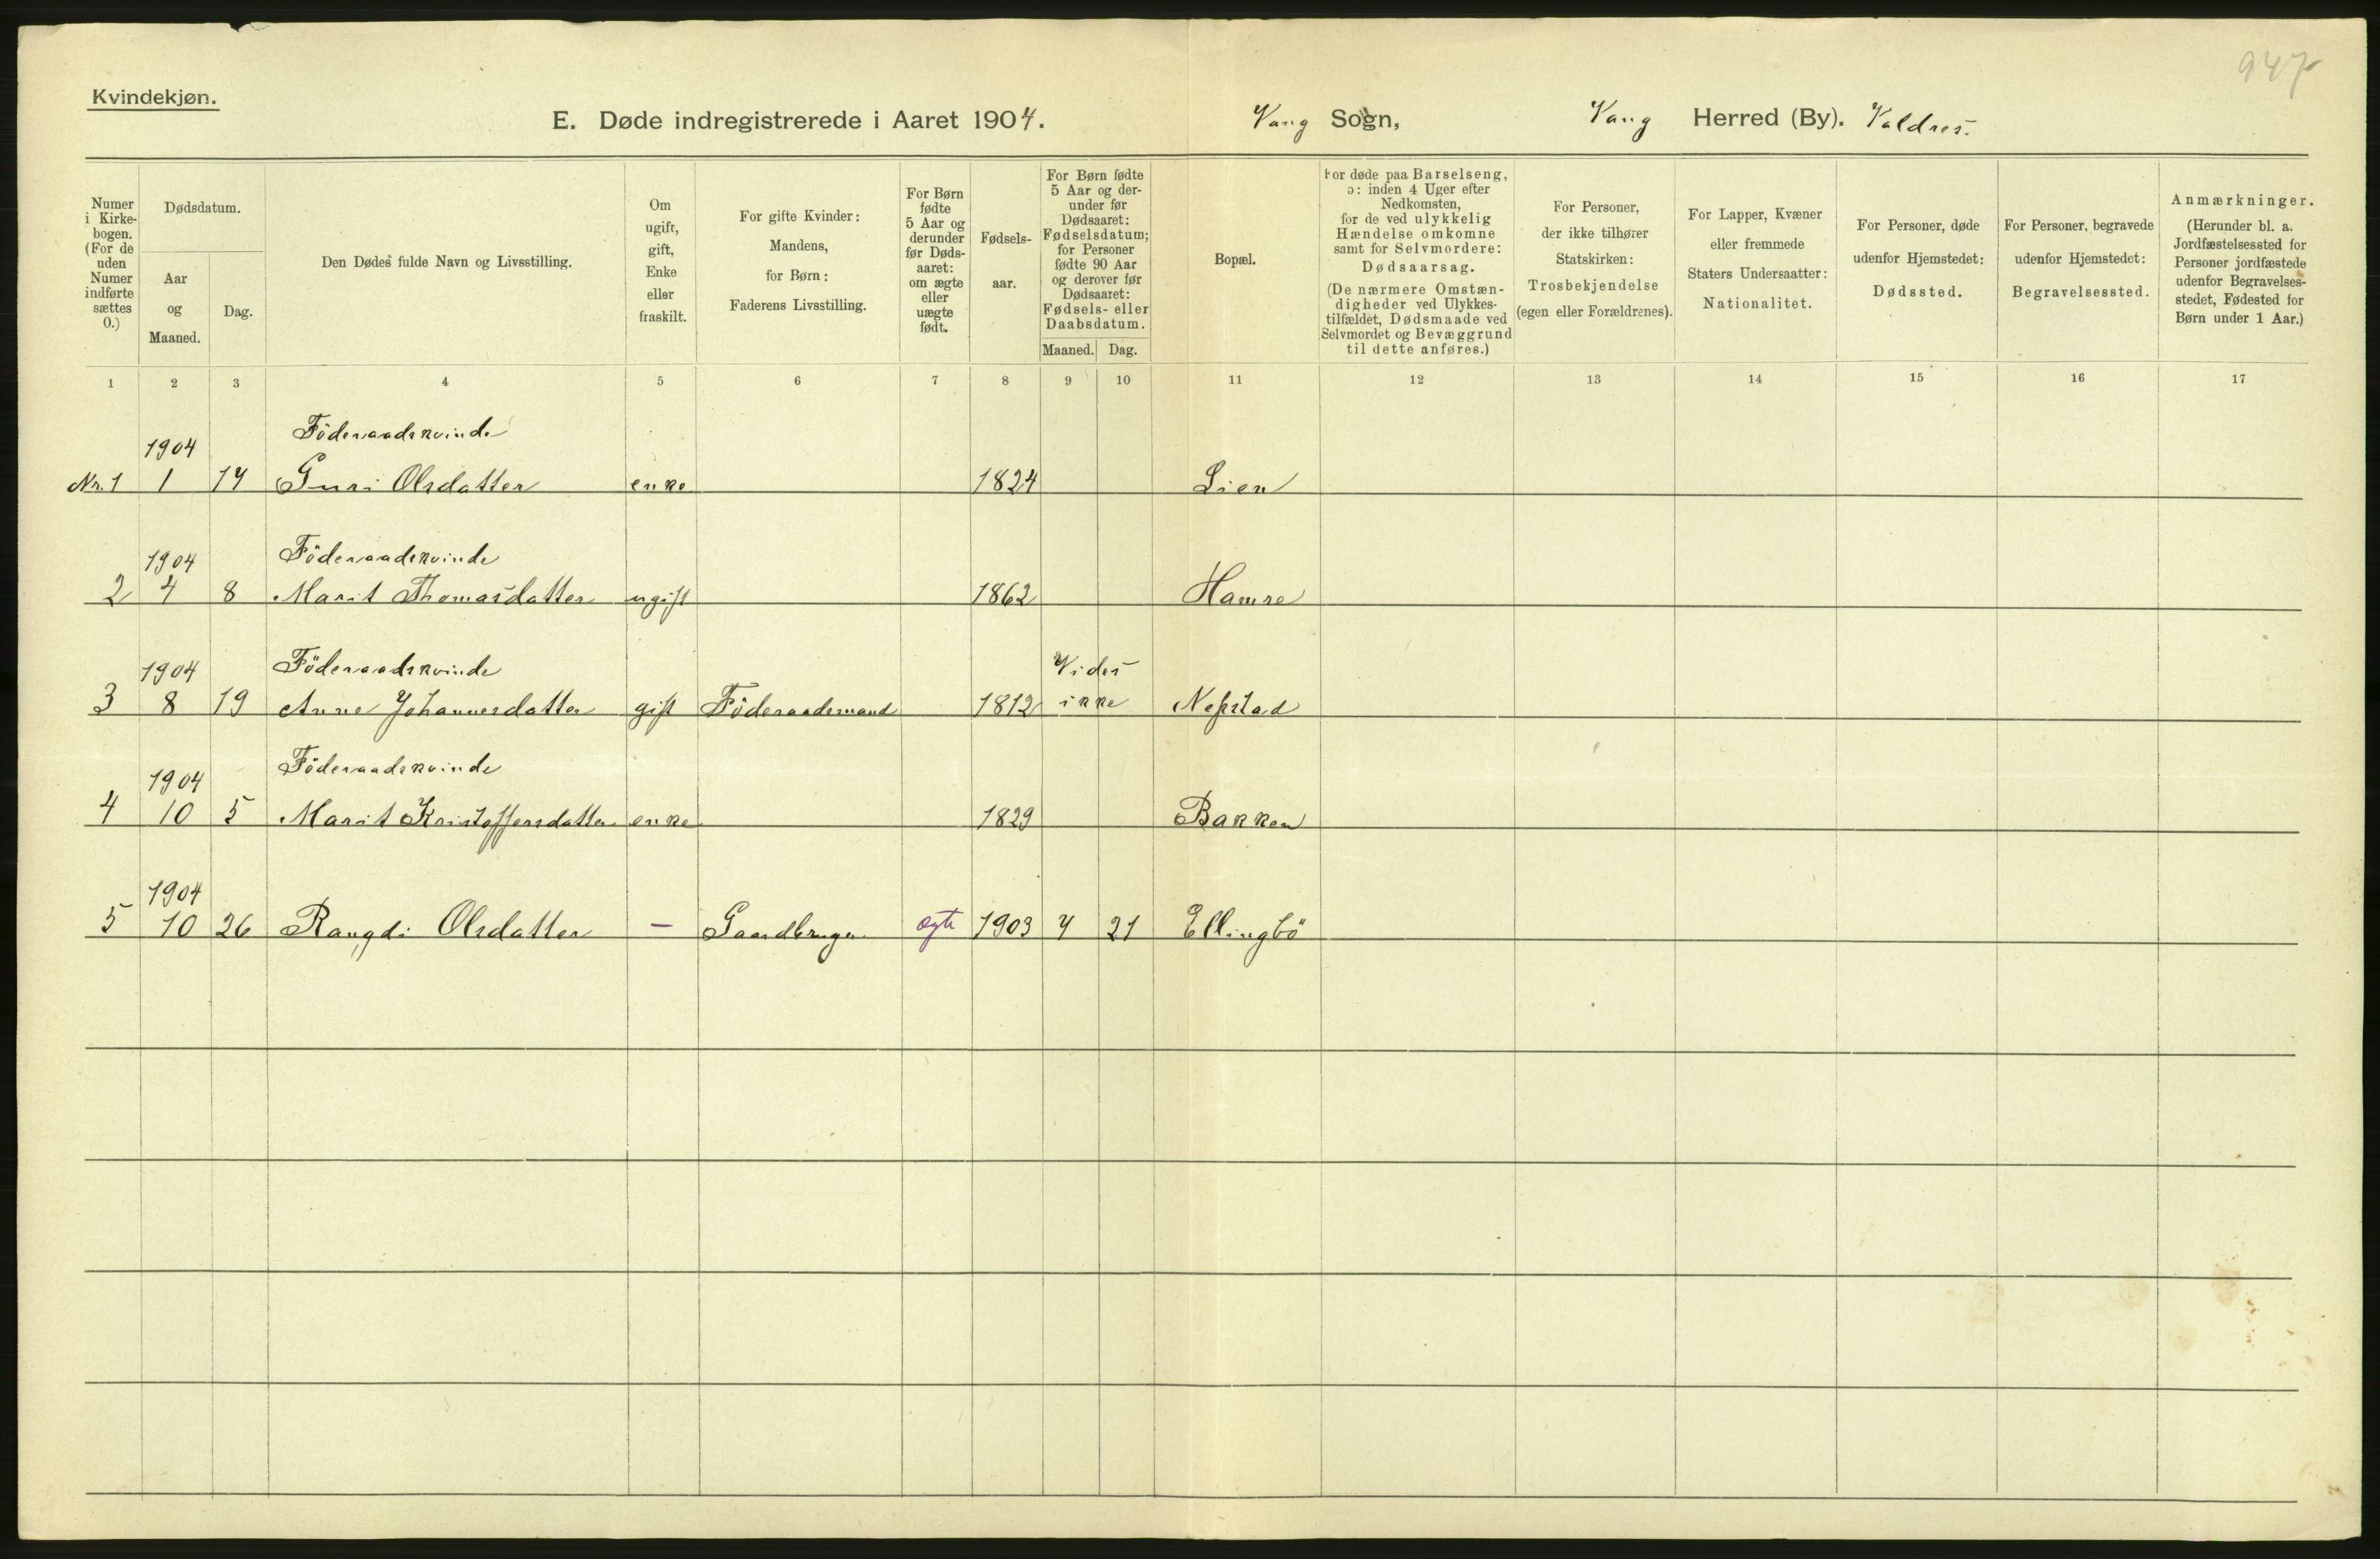 947
Kvindekjøn.
E. Døde indregistrerede i Aaret 1904. Vang Sogn, Vang Herred (By). Valdres.
Numer i Kirkebogen. (For de uden Numer indførte sættes 0.)
Dødsdatum.
Aar og Maaned.
Dag.
Den Dødes fulde Navn og Livsstilling.
Om ugift, gift, Enke eller fraskilt.
For gifte Kvinder: Mandens, for Børn: Faderens Livsstilling.
For Børn fødte 5 Aar og derunder før Dødsaaret: om ægte eller uægte født.
Fødselsaar.
For Børn fødte 5 Aar og derunder før Dødsaaret: Fødselsdatum; for Personer fødte 90 Aar og derover før Dødsaaret: Fødsels- eller Daabsdatum.
Maaned. Dag.
Bopæl.
For døde paa Barselseng, ɔ: inden 4 Uger efter Nedkomsten, for de ved ulykkelig Hændelse omkomne samt for Selvmordere: Dødsaarsag. (De nærmere Omstændigheder ved Ulykkestilfældet, Dødsmaade ved Selvmordet og Bevæggrund til dette anføres.)
For Personer, der ikke tilhører Statskirken: Trosbekjendelse (egen eller Forældrenes).
For Lapper, Kvæner eller fremmede Staters Undersaatter: Nationalitet.
For Personer, døde udenfor Hjemstedet: Dødssted.
For Personer, begravede udenfor Hjemstedet: Begravelsessted.
Anmærkninger. (Herunder bl. a. Jordfæstelsessted for Personer jordfæstede udenfor Begravelsesstedet, Fødested for Børn under 1 Aar.)
1 2 3 4 5 6 7 8 9 10 11 12 13 14 15 16 17
1904 Föderaadskvinde
Nr. 1 1 14 Guri Olsdatter enke 1824 Lien
1904 Föderaadskvinde
2 4 8 Marit Thomasdatter ugift 1862 Hamre
1904 Föderaadskvinde Vides
3 8 19 Anne Johannesdatter gift Föderaadsmand 1812 ikke Nefstad
1904 Föderaadskvinde
4 10 5 Marit Kristoffersdatter enke 1829 Bakken
1904
5 10 26 Rangdi Olsdatter — Gaardbruger ægte 1903 4 21 Ellingbö